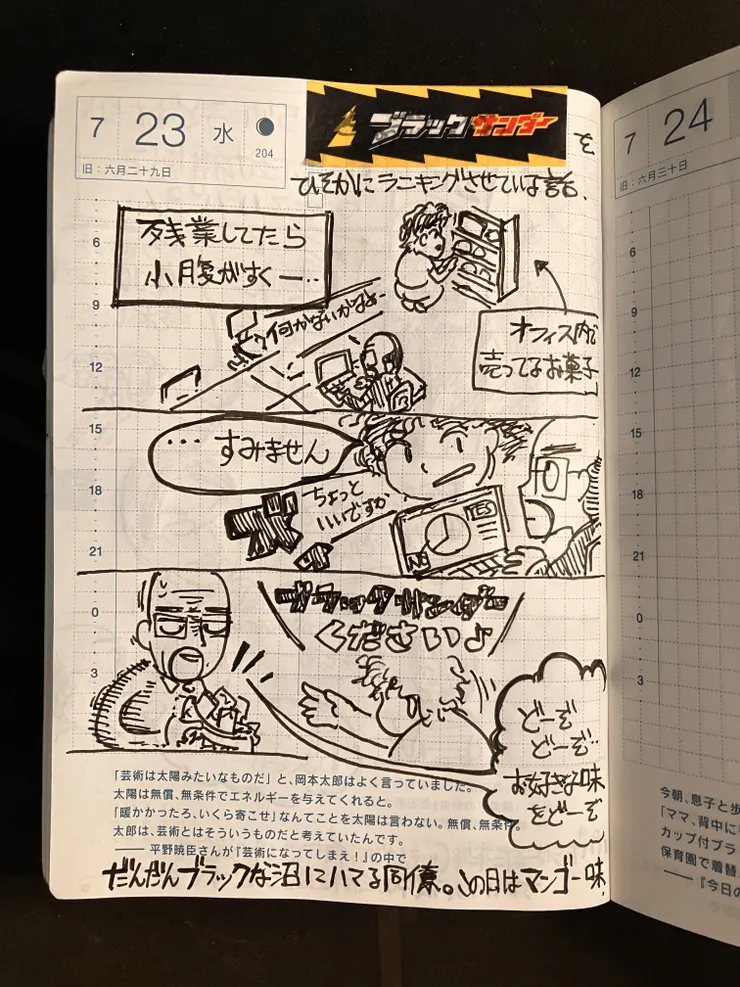 7 23 水
204
旧：六月二十九日
ブラックサンダー
を
ひそかにランキングさせている話、
残業してたら
小腹がすくー…
何かないかなぁー
オフィス内で
売ってるお菓子
…すみません
ちょっと
いいですか
YES
NO
ブラックサンダー
ください♪
どーぞ
どーぞ…
お好きな味
をどーぞ
6
9
12
15
18
21
0
3
「芸術は太陽みたいなものだ」と、岡本太郎はよく言っていました。
太陽は無償、無条件でエネルギーを与えてくれると。
「暖かかったろ、いくら寄こせ」なんてことを太陽は言わない。無償、無条件。
太郎は、芸術とはそういうものだと考えていたんです。
―― 平野暁臣さんが『芸術になってしまえ！』の中で
だんだんブラックな沼にハマる同僚。この日はマンゴー味
7 24
旧：六月三十日
6
9
12
15
18
21
0
3
今朝、息子と歩
「ママ、背中に
カップ付ブラ
保育園で着替
――『今日の